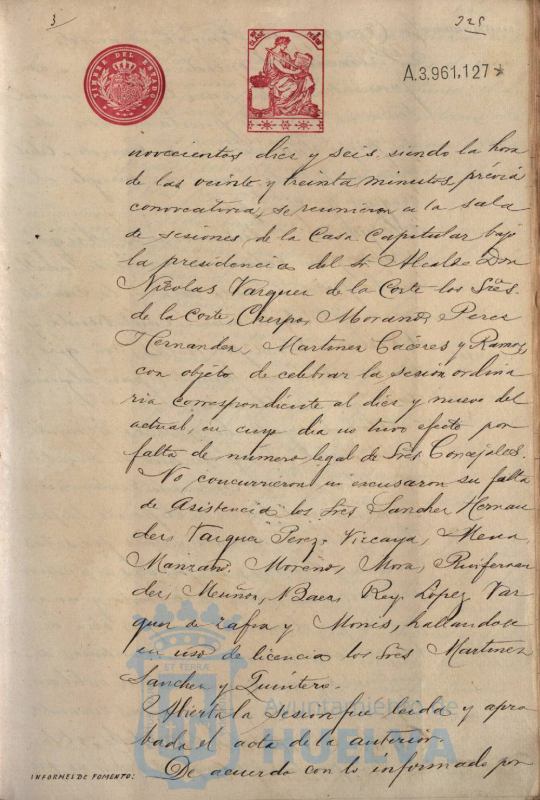 3
325
TIMBRE DEL ESTADO
A.3.961,127
novecientos diez y seis, siendo la hora
de las veinte y treinta minutos, prévia
convocatoria, se reunieron en la sala
de sesiones de la Casa Capitular bajo
la presidencia del Sr. Alcalde Don
Nicolas Vazquez de la Corte los Sres.
de la Corte, Morano, Perez
Hernandez, Martinez Cáceres y Ramos,
con objeto de celebrar la sesión ordina
ria correspondiente al diez y nueve del
actual, en cuyo dia no tuvo efecto por
falta de número legal de Sres Concejales.
No concurrieron ni excusaron su falta
de Asistencia los Sres Sanchez Hernan
dez, Vazquez Perez, Vizcaya, Mena,
Manzano, Moreno, Mora, Ruifernan
dez, Muñoz, Baez, Rey, Lopez Vaz
quez de Zafra y Monis, hallandose
en uso de licencia los Sres Martinez
Sanchez y Quintero.
Abierta la sesión fue leida y apro
bada el acta de la anterior.
INFORMES DE FOMENTO:
De acuerdo con lo informado por
ET TERRÆ
Ayuntamiento de
HUELVA